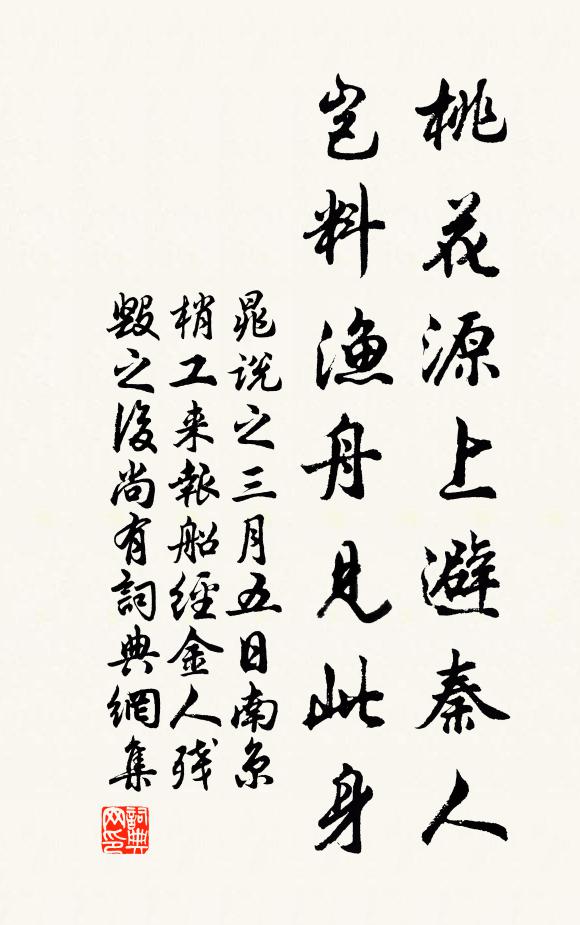 桃花源上避秦人
岂料渔舟見此身
晁説之三月五日南京
梢工来報船經金人殘
毀之後尚有詞典網集
詞典
网印